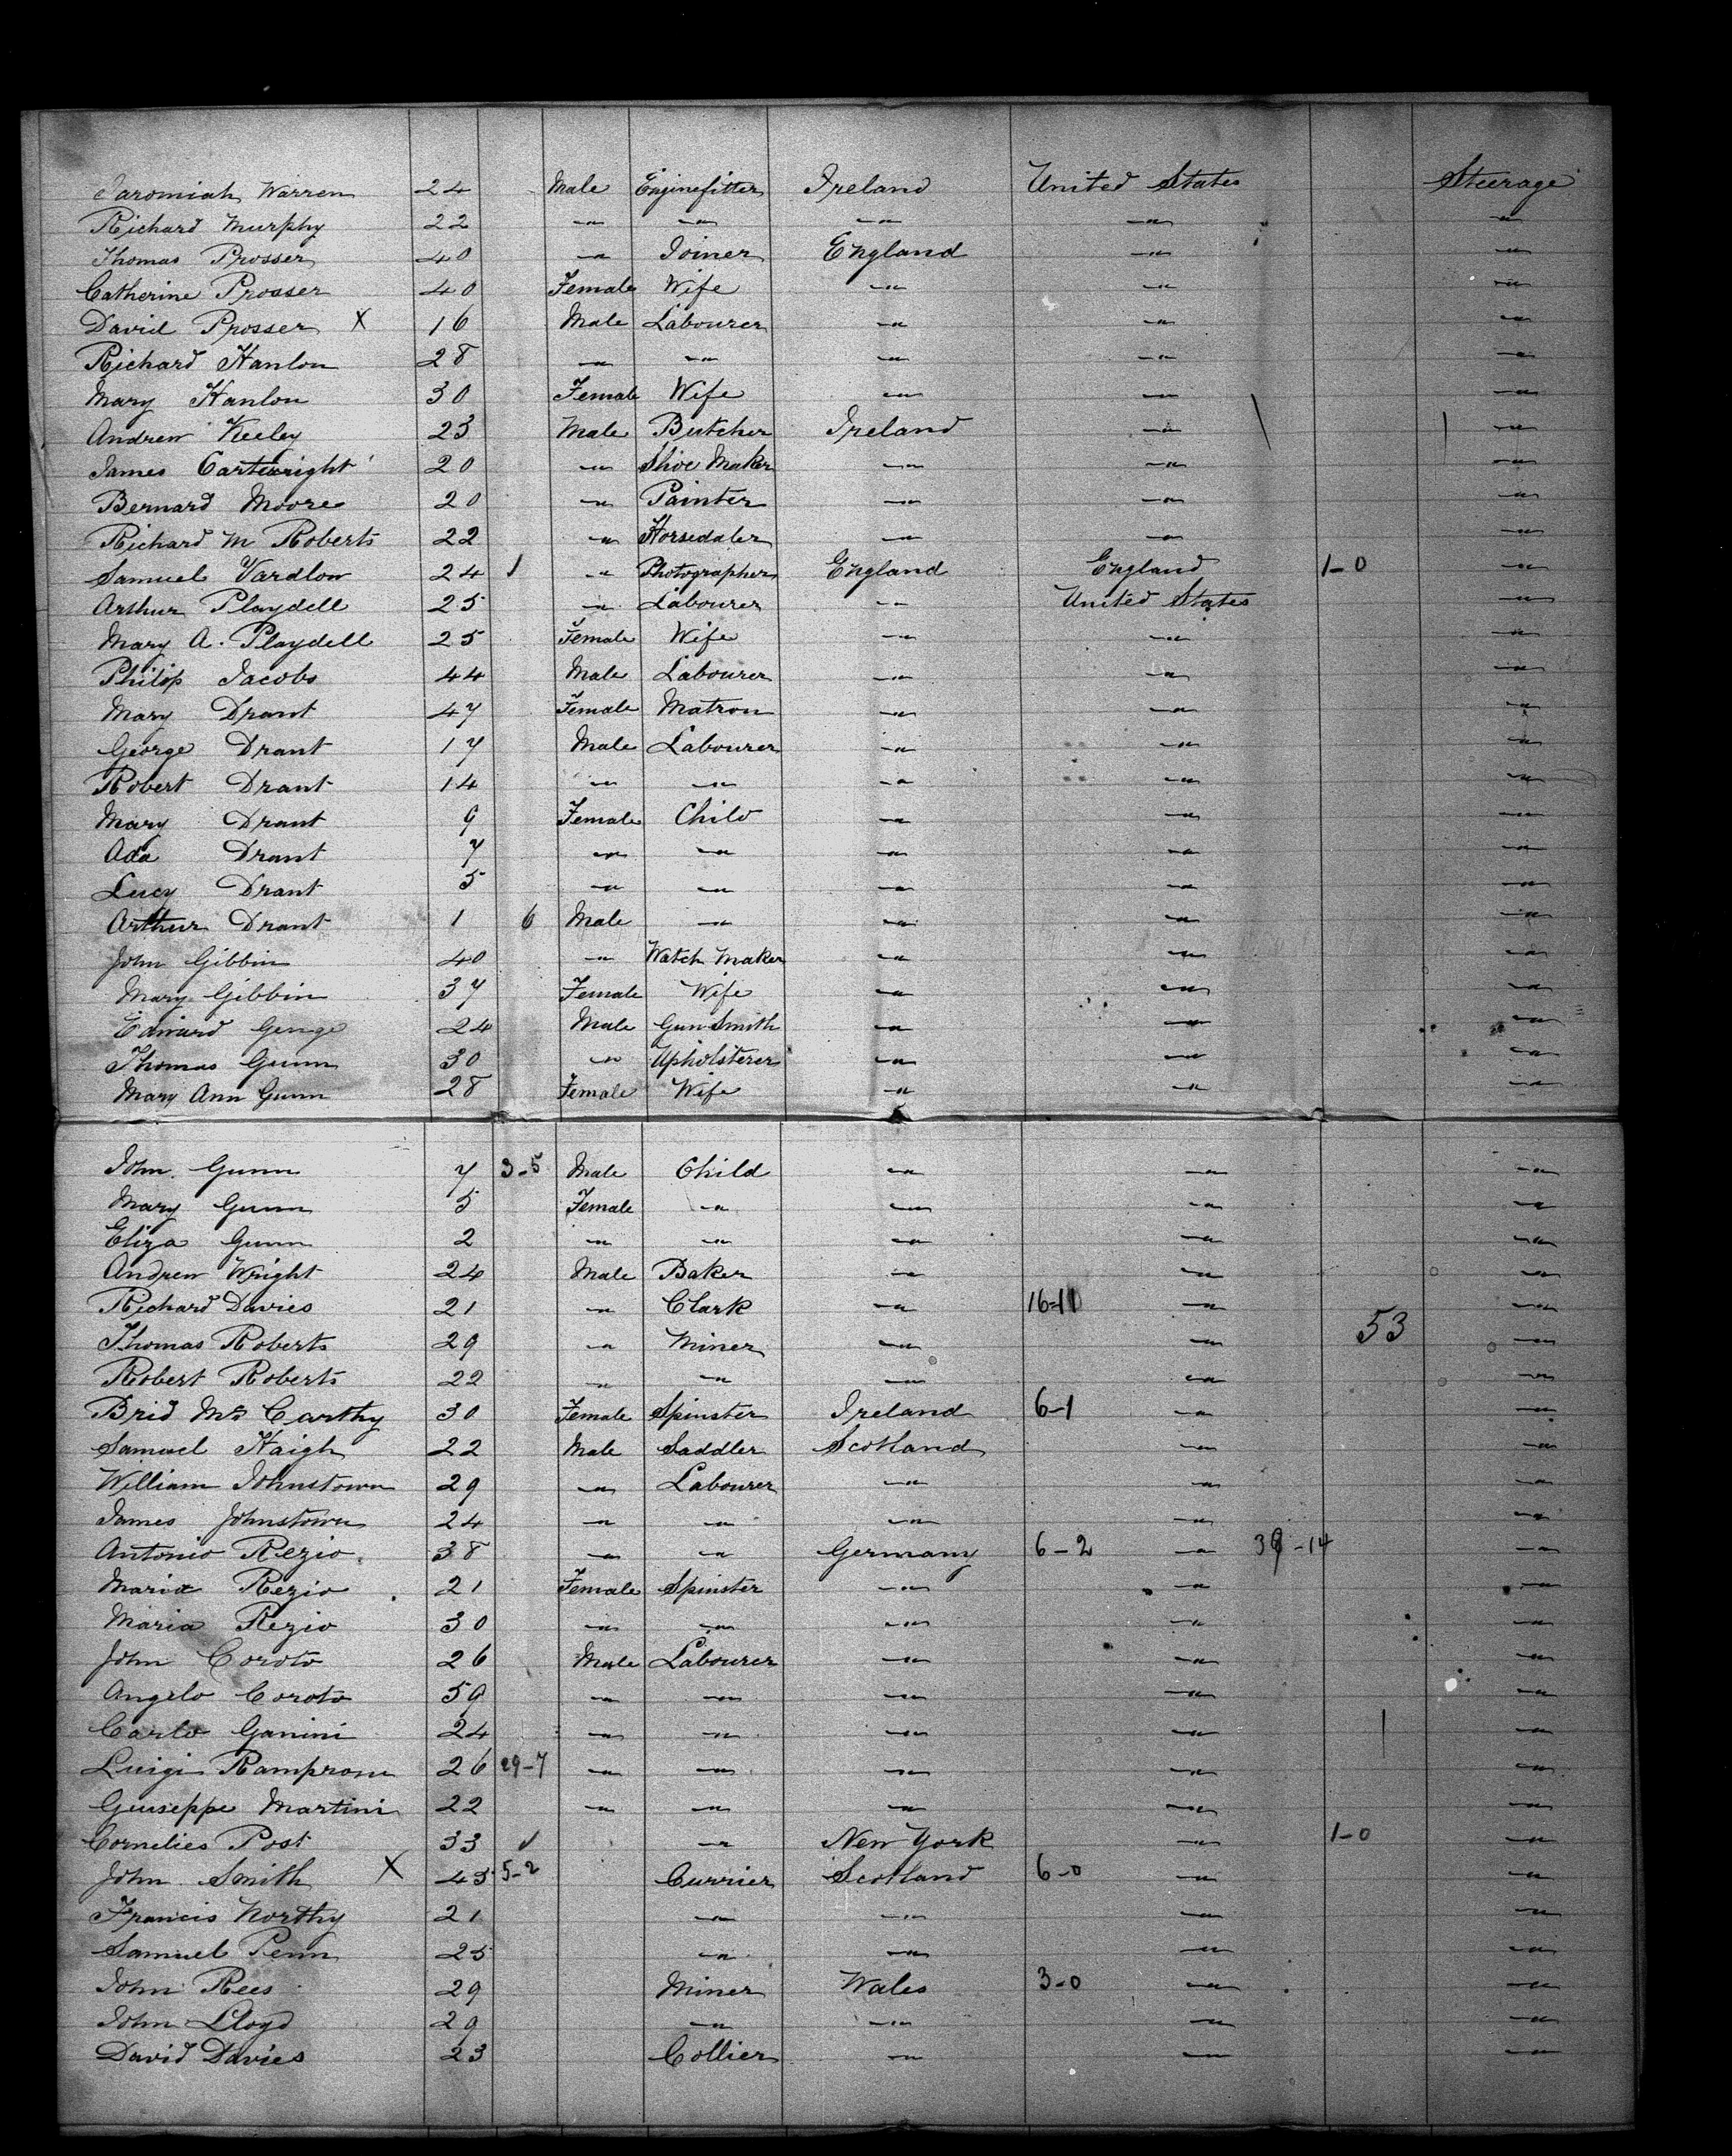 Jaromiah Warren 24 Male Enginefitter Ireland United States Steerage
Richard Murphy 22 " " " " "
Thomas Prosser 40 " Joiner England " "
Catherine Prosser 40 Female Wife " " "
David Prosser X 16 Male Labourer " " "
Richard Hanlon 28 " " " " "
Mary Hanlon 30 Female Wife " " "
Andrew Keeley 23 Male Butcher Ireland " "
James Cartwright 20 " Shoe Maker " " "
Bernard Moore 20 " Painter " " "
Richard M Roberts 22 " Horsedaler " " "
Samuel Vardlow 24 1 " Photographer England England 1-0 "
Arthur Playdell 25 " Labourer " United States "
Mary A. Playdell 25 Female Wife " " "
Philip Jacobs 44 Male Labourer " " "
Mary Drant 47 Female Matron " " "
George Drant 17 Male Labourer " " "
Robert Drant 14 " " " " "
Mary Drant 9 Female Child " " "
Ada Drant 7 " " " " "
Lucy Drant 5 " " " " "
Arthur Drant 1 6 Male " " " "
John Gibbin 40 " Watch Maker " " "
Mary Gibbin 37 Female Wife " " "
Edward Genge 24 Male Gun Smith " " "
Thomas Gunn 30 " Upholsterer " " "
Mary Ann Gunn 28 Female Wife " " "
John Gunn 7 3-5 Male Child " " "
Mary Gunn 5 Female " " " "
Eliza Gunn 2 " " " " "
Andrew Wright 24 Male Baker " " "
Richard Davies 21 " Clark " 16-11 " "
Thomas Roberts 29 " Miner " " 53 "
Robert Roberts 22 " " " " "
Brid Mc Carthy 30 Female Spinster Ireland 6-1 " "
Samuel Haigh 22 Male Saddler Scotland " "
William Johnstown 29 " Labourer " " "
James Johnstown 24 " " " " "
Antonio Rezio 38 " " Germany 6-2 " 39-14 "
Maria Rezio 21 Female Spinster " " "
Maria Rezio 30 " " " " "
John Coroto 26 Male Labourer " " "
Angelo Coroto 59 " " " " "
Carlo Ganini 24 " " " " "
Luigi Ramproni 26 29-7 " " " " "
Guiseppe Martini 22 " " " " "
Cornelies Post 33 1 " New York " 1-0 "
John Smith X 45 5-2 Currier Scotland 6-0 " "
Francis Northy 21 " " " "
Samuel Penn 25 " " " "
John Rees 29 Miner Wales 3-0 " "
John Lloyd 29 " " " "
David Davies 23 Collier " " "